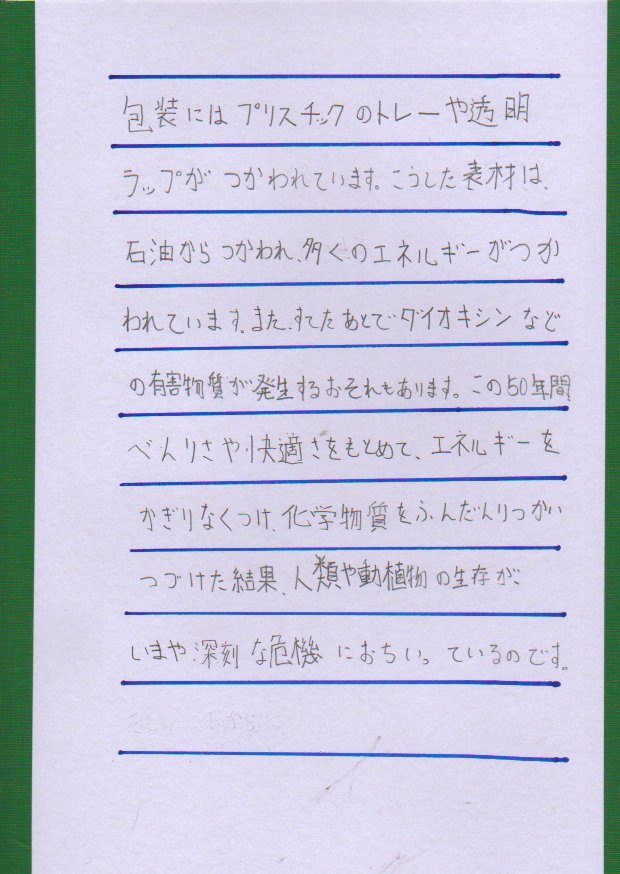 包装にはプリスチックのトレーや透明
ラップがつかわれています。こうした素材は、
石油からつかわれ、多くのエネルギーがつか
われています。また、すてたあとでダイオキシンなど
の有害物質が発生するおそれもあります。この50年間
べんりさや快適さをもとめて、エネルギーを
かぎりなくつけ、化学物質をふんだんりつかい
つづけた結果、人類や動植物の生存が、
いまや深刻な危機におちいっているのです。